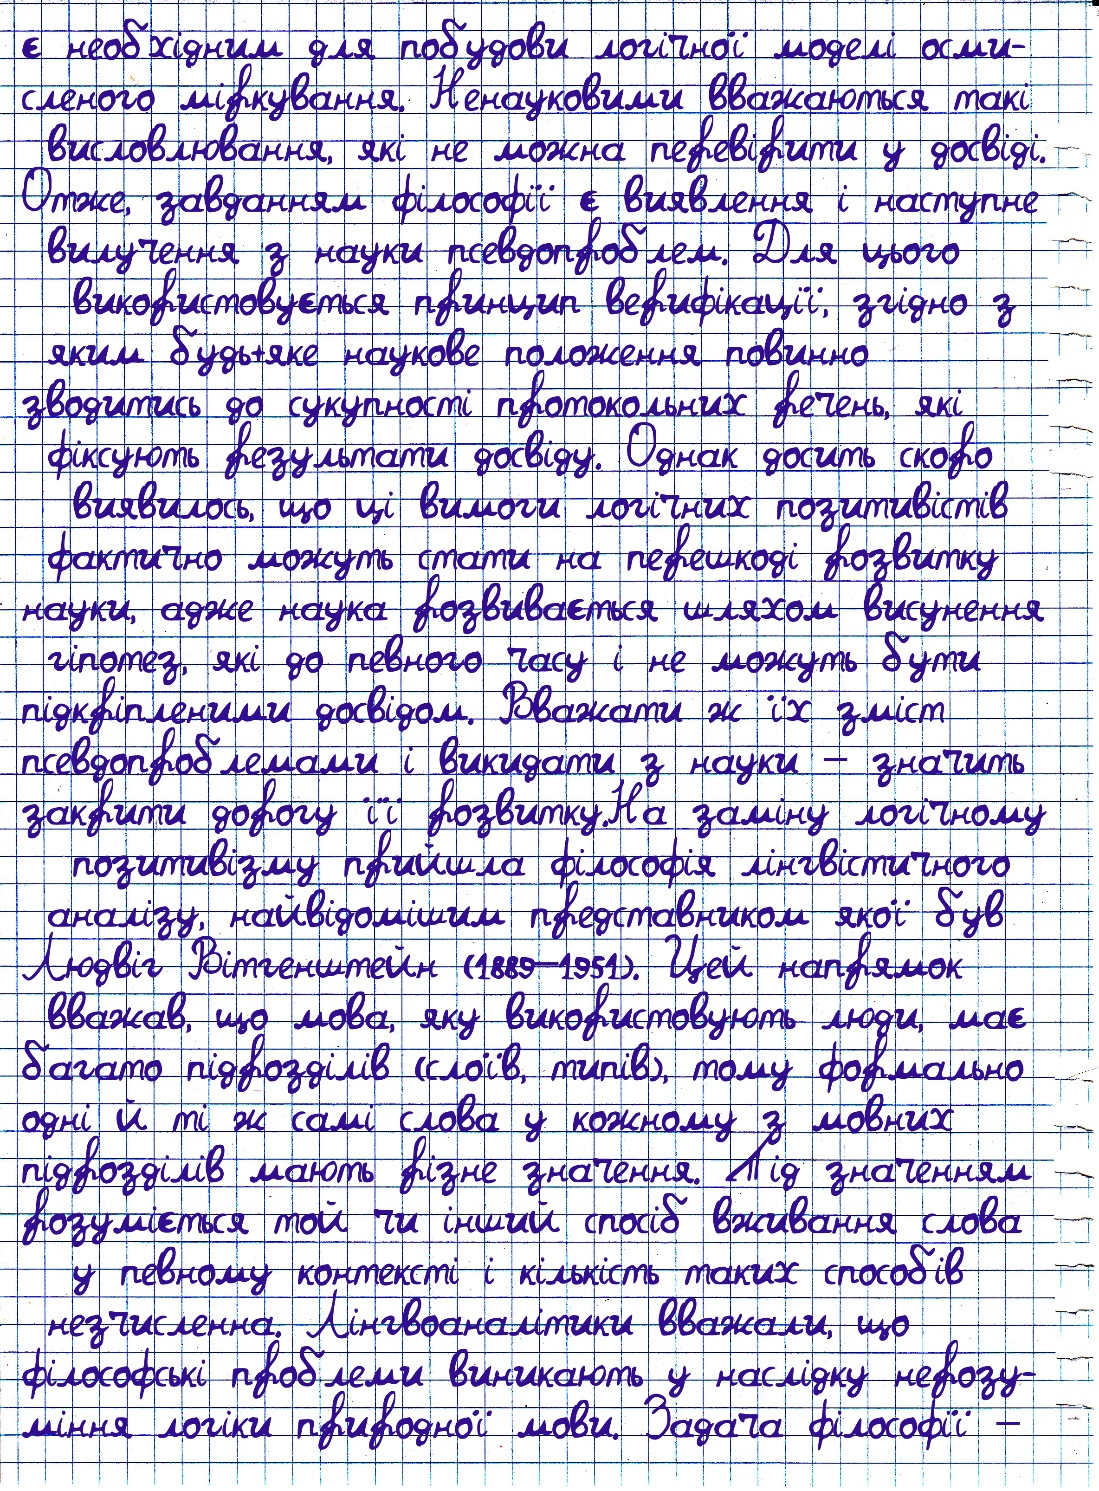 є необхідним для побудови логічної моделі осми-
сленого міркування. Ненауковими вважаються такі
висловлювання, які не можна перевірити у досвіді.
Отже, завданням філософії є виявлення і наступне
вилучення з науки псевдопроблем. Для цього
використовується принцип верифікації, згідно з
яким будь+яке наукове положення повинно
зводитись до сукупності протокольних речень, які
фіксують результати досвіду. Однак досить скоро
виявилось, що ці вимоги логічних позитивістів
фактично можуть стати на перешкоді розвитку
науки, адже наука розвивається шляхом висунення
гіпотез, які до певного часу і не можуть бути
підкріпленими досвідом. Вважати ж їх зміст
псевдопроблемами і викидати з науки – значить
закрити дорогу її розвитку.На заміну логічному
позитивізму прийшла філософія лінгвістичного
аналізу, найвідомішим представником якої був
Людвіг Вітгенштейн (1889–1951). Цей напрямок
вважав, що мова, яку використовують люди, має
багато підрозділів (слоїв, типів), тому формально
одні й ті ж самі слова у кожному з мовних
підрозділів мають різне значення. Під значенням
розуміється той чи інший спосіб вживання слова
у певному контексті і кількість таких способів
незчисленна. Лінгвоаналітики вважали, що
філософські проблеми виникають у наслідку нерозу-
міння логіки природної мови. Задача філософії –